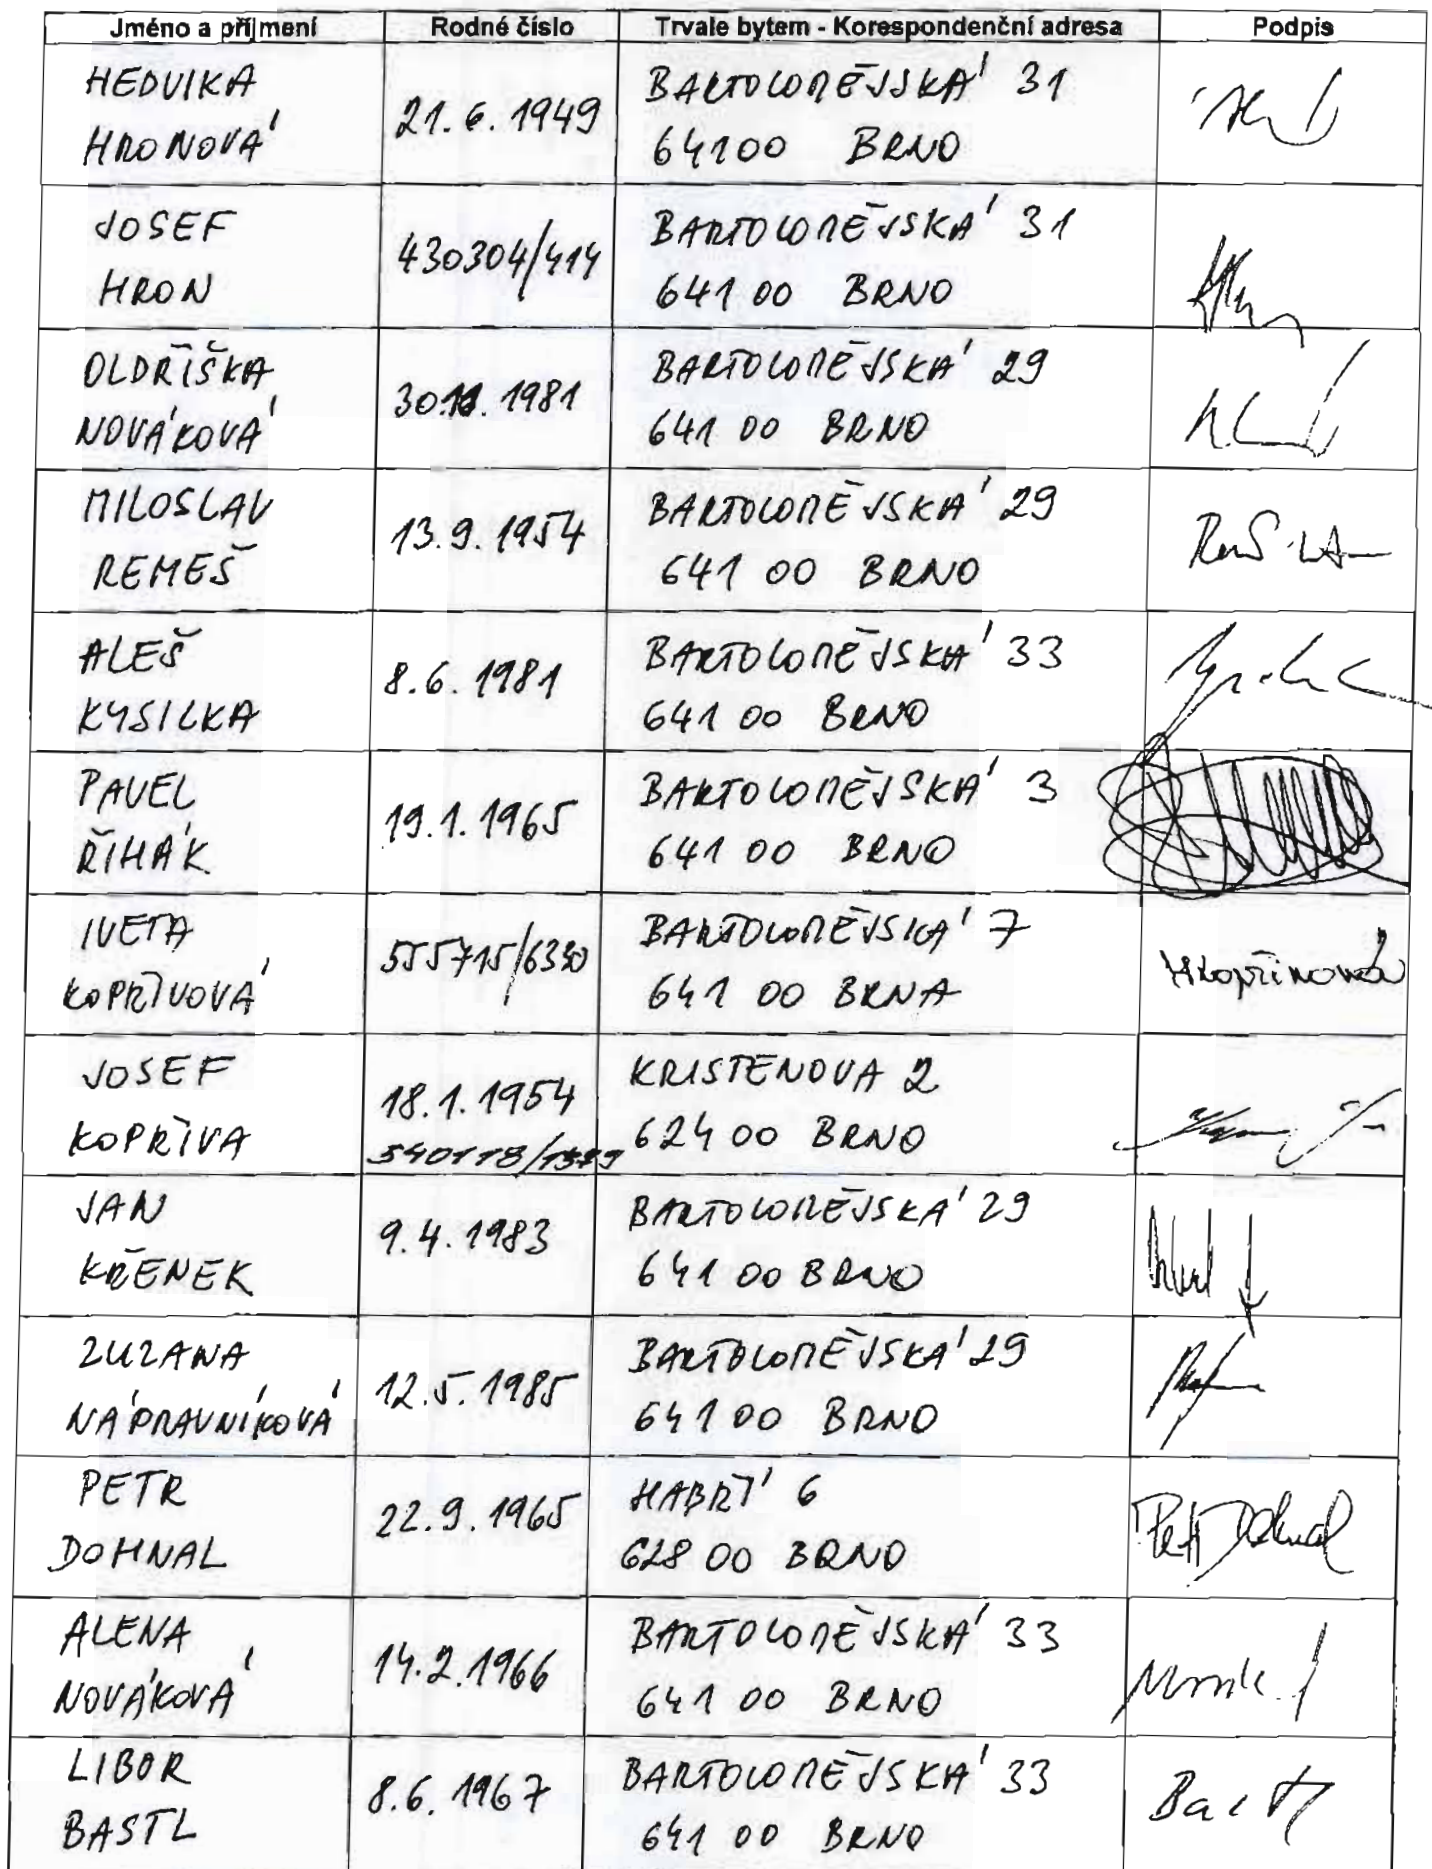 Jméno a příjmení Rodné číslo Trvale bytem - Korespondenční adresa Podpis
HEDVIKA
HRONOVÁ
21. 6. 1949
BARTOLOMĚJSKÁ 31
64100 BRNO
JOSEF
HRON
430304/414
BARTOLOMĚJSKÁ 31
641 00 BRNO
OLDŘIŠKA
NOVÁKOVÁ
1981
BARTOLOMĚJSKÁ 29
641 00 BRNO
MILOSLAV
REMEŠ
13.9.1954
BARTOLOMĚJSKÁ 29
641 00 BRNO
ALEŠ
KYSILKA
8.6.1981
BARTOLOMĚJSKÁ 33
641 00 BRNO
PAVEL
ŘIHÁK
19.1.1965
BARTOLOMĚJSKÁ 3
641 00 BRNO
IVETA
KOPŘIVOVÁ
555715/6330
BARTOLOMĚJSKÁ 7
641 00 BRNA
JOSEF
KOPŘIVA
18.1.1954
KRISTENOVA 2
624 00 BRNO
JAN
KŘENEK
9.4.1983
BARTOLOMĚJSKÁ 29
641 00 BRNO
ZUZANA
NÁPRAVNÍKOVÁ
12.5.1985
BARTOLOMĚJSKÁ 29
641 00 BRNO
PETR
DOHNAL
22.9.1965
HABŘÍ 6
628 00 BRNO
Petr Dohnal
ALENA
NOVÁKOVÁ
14.2.1966
BARTOLOMĚJSKÁ 33
641 00 BRNO
LIBOR
BASTL
8.6.1967
BARTOLOMĚJSKÁ 33
641 00 BRNO